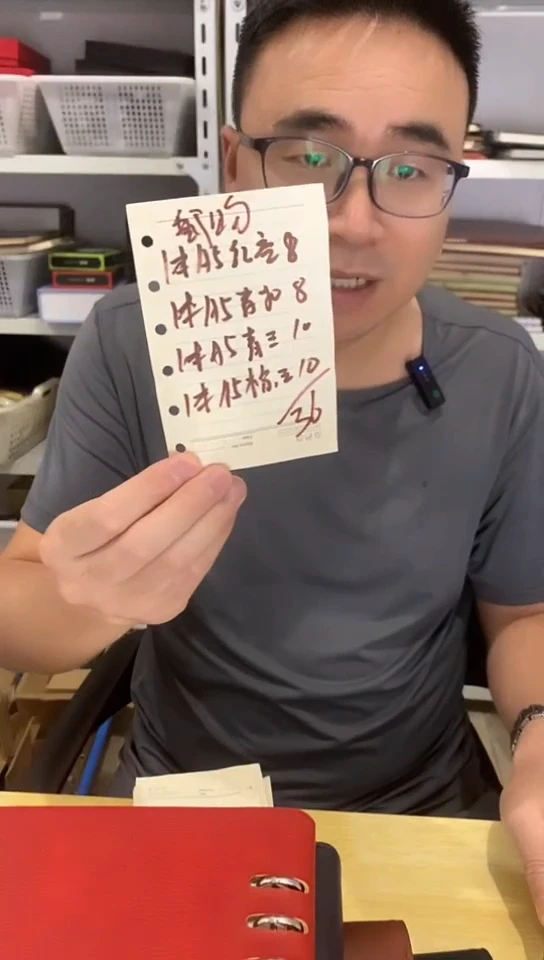 1本A5红色8
1本A5青扣8
1本A5青三10
1本A5棕三10
36